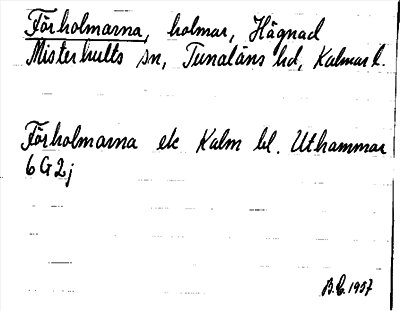 Förholmarna, holmar, Hägnad
Misterhults sn, Tunaläns hd, Kalmar l.
Förholmarna ek Kalm bl. Uthammar
6G2j
B.E. 1957